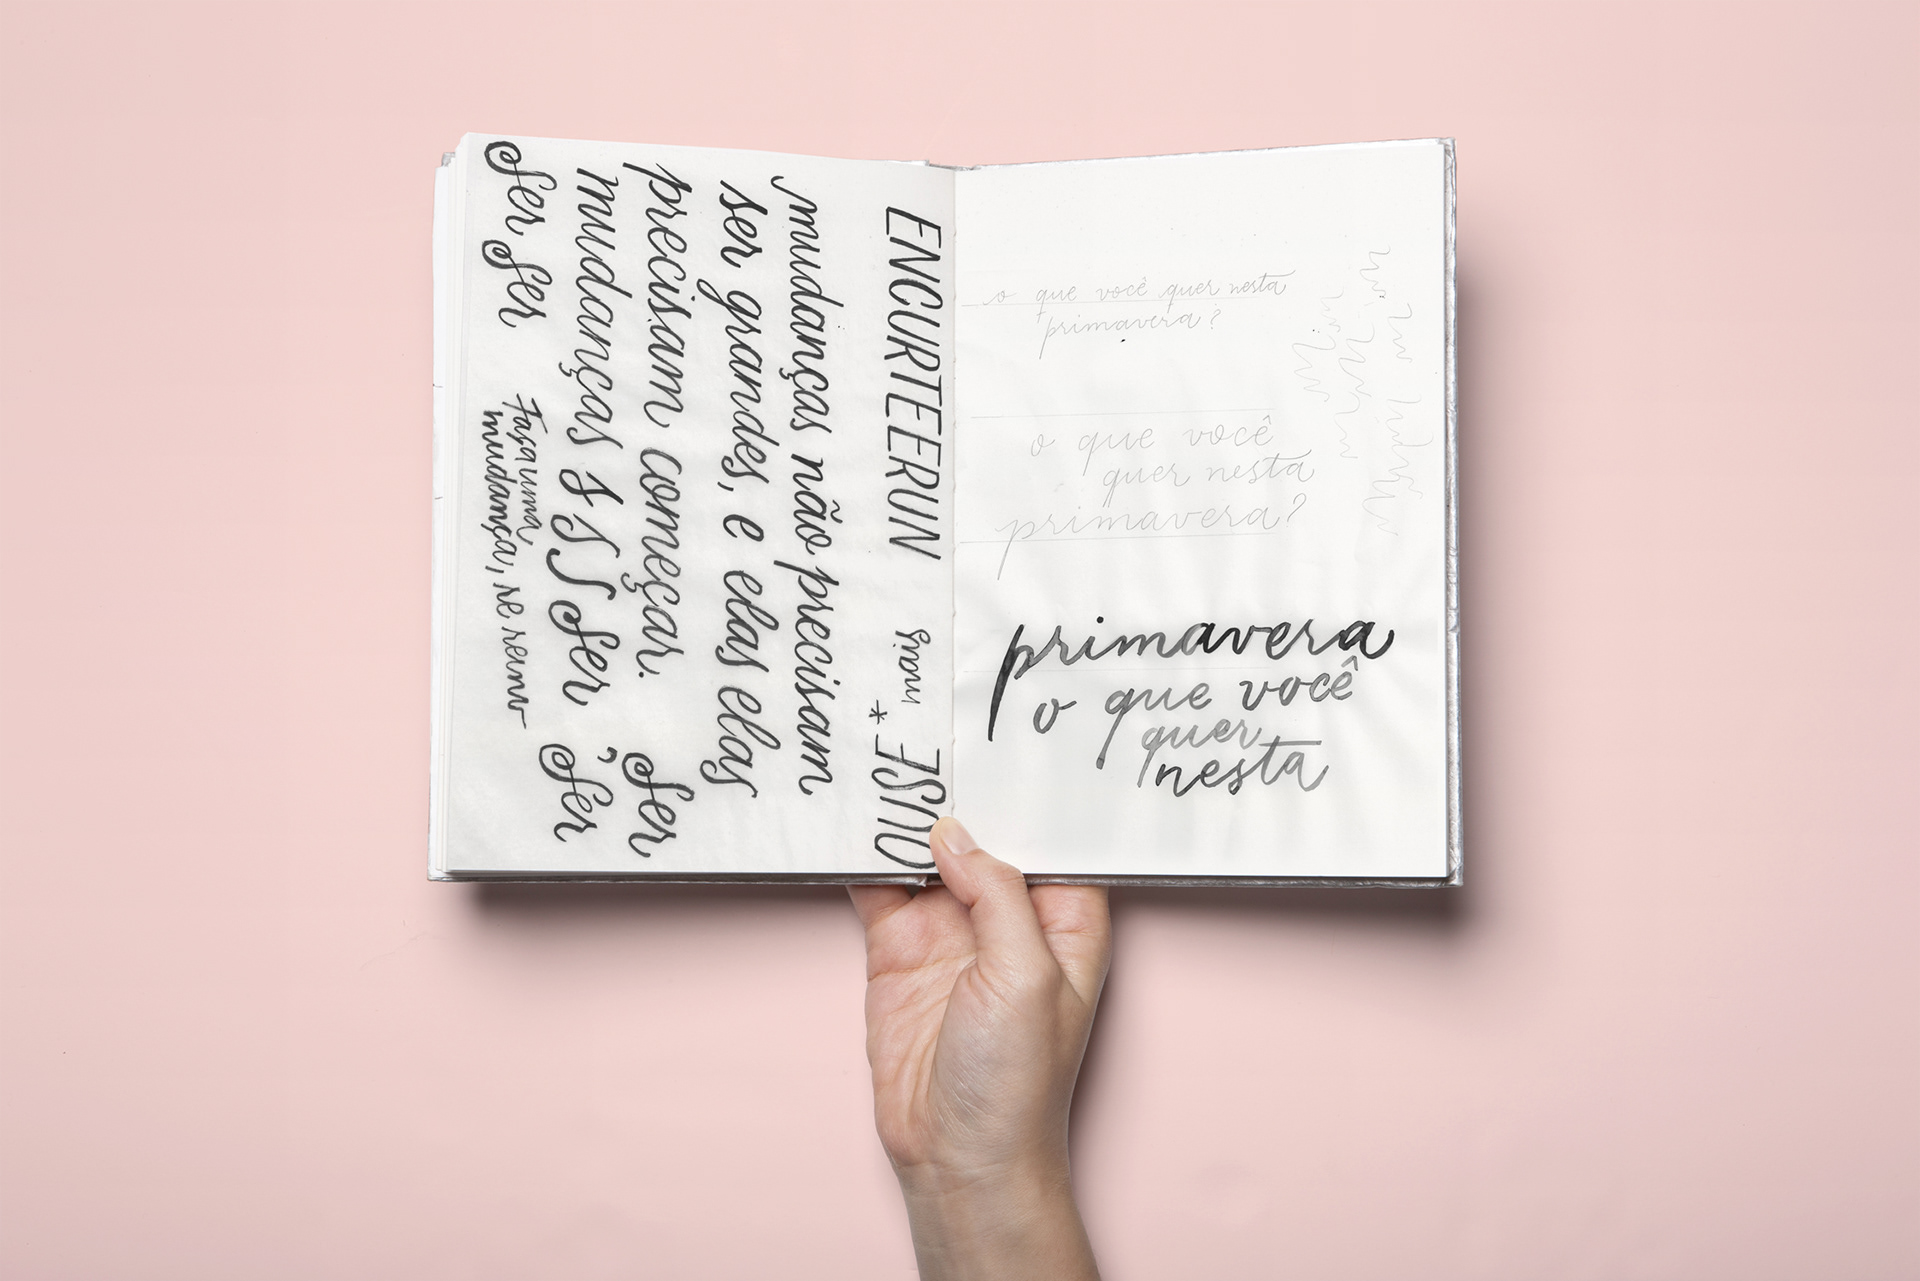 ENCURTEERUN
mais
OUSE*
mudanças não precisam
ser grandes, e elas elas
precisam começar. Ser
mudanças s s S Ser, Ser
Ser Ser
Faça uma
mudança, se
o que você quer nesta
primavera?
o que você
quer nesta
primavera?
primavera
o que você
quer
nesta